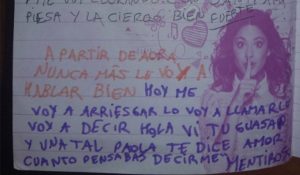 ME VOY LLORANDO
PIESA Y LA CIERRO BIEN FUERTE
A PARTIR DE AORA
NUNCA MÁS LE VOY A
HABLAR BIEN HOY ME
VOY A ARRIESGAR LO VOY A LLAMARLE
VOY A DECIR HOLA VI TU GUASAP
Y UNA TAL PAOLA TE DICE AMOR
CUANTO PENSABAS DECIRME MENTIROSO